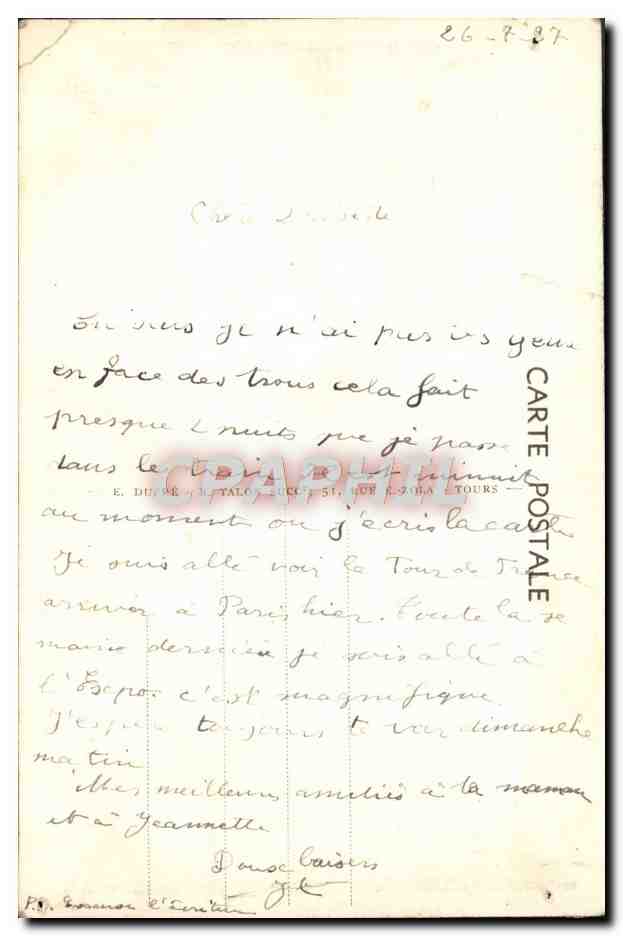 26-7-37
Chère
je n'ai pas les yeux
en face des trous cela fait
presque 2 nuits que je passe
dans le train il est minuit
E. DUPRÉ TALON SUCCr, 51, RUE E. ZOLA TOURS
au moment ou j'écris la carte
Je suis allé voir la Tour de France
arriver à Paris hier. Toute la se
maine dernière je suis allé à
l'Expo. c'est magnifique
J'espère toujours te voir dimanche
matin
Mes meilleures amitiés à ta maman
et à Jeannette
Doux baisers
P.S. Excuse l'écriture
CARTE POSTALE
CPAPHIL